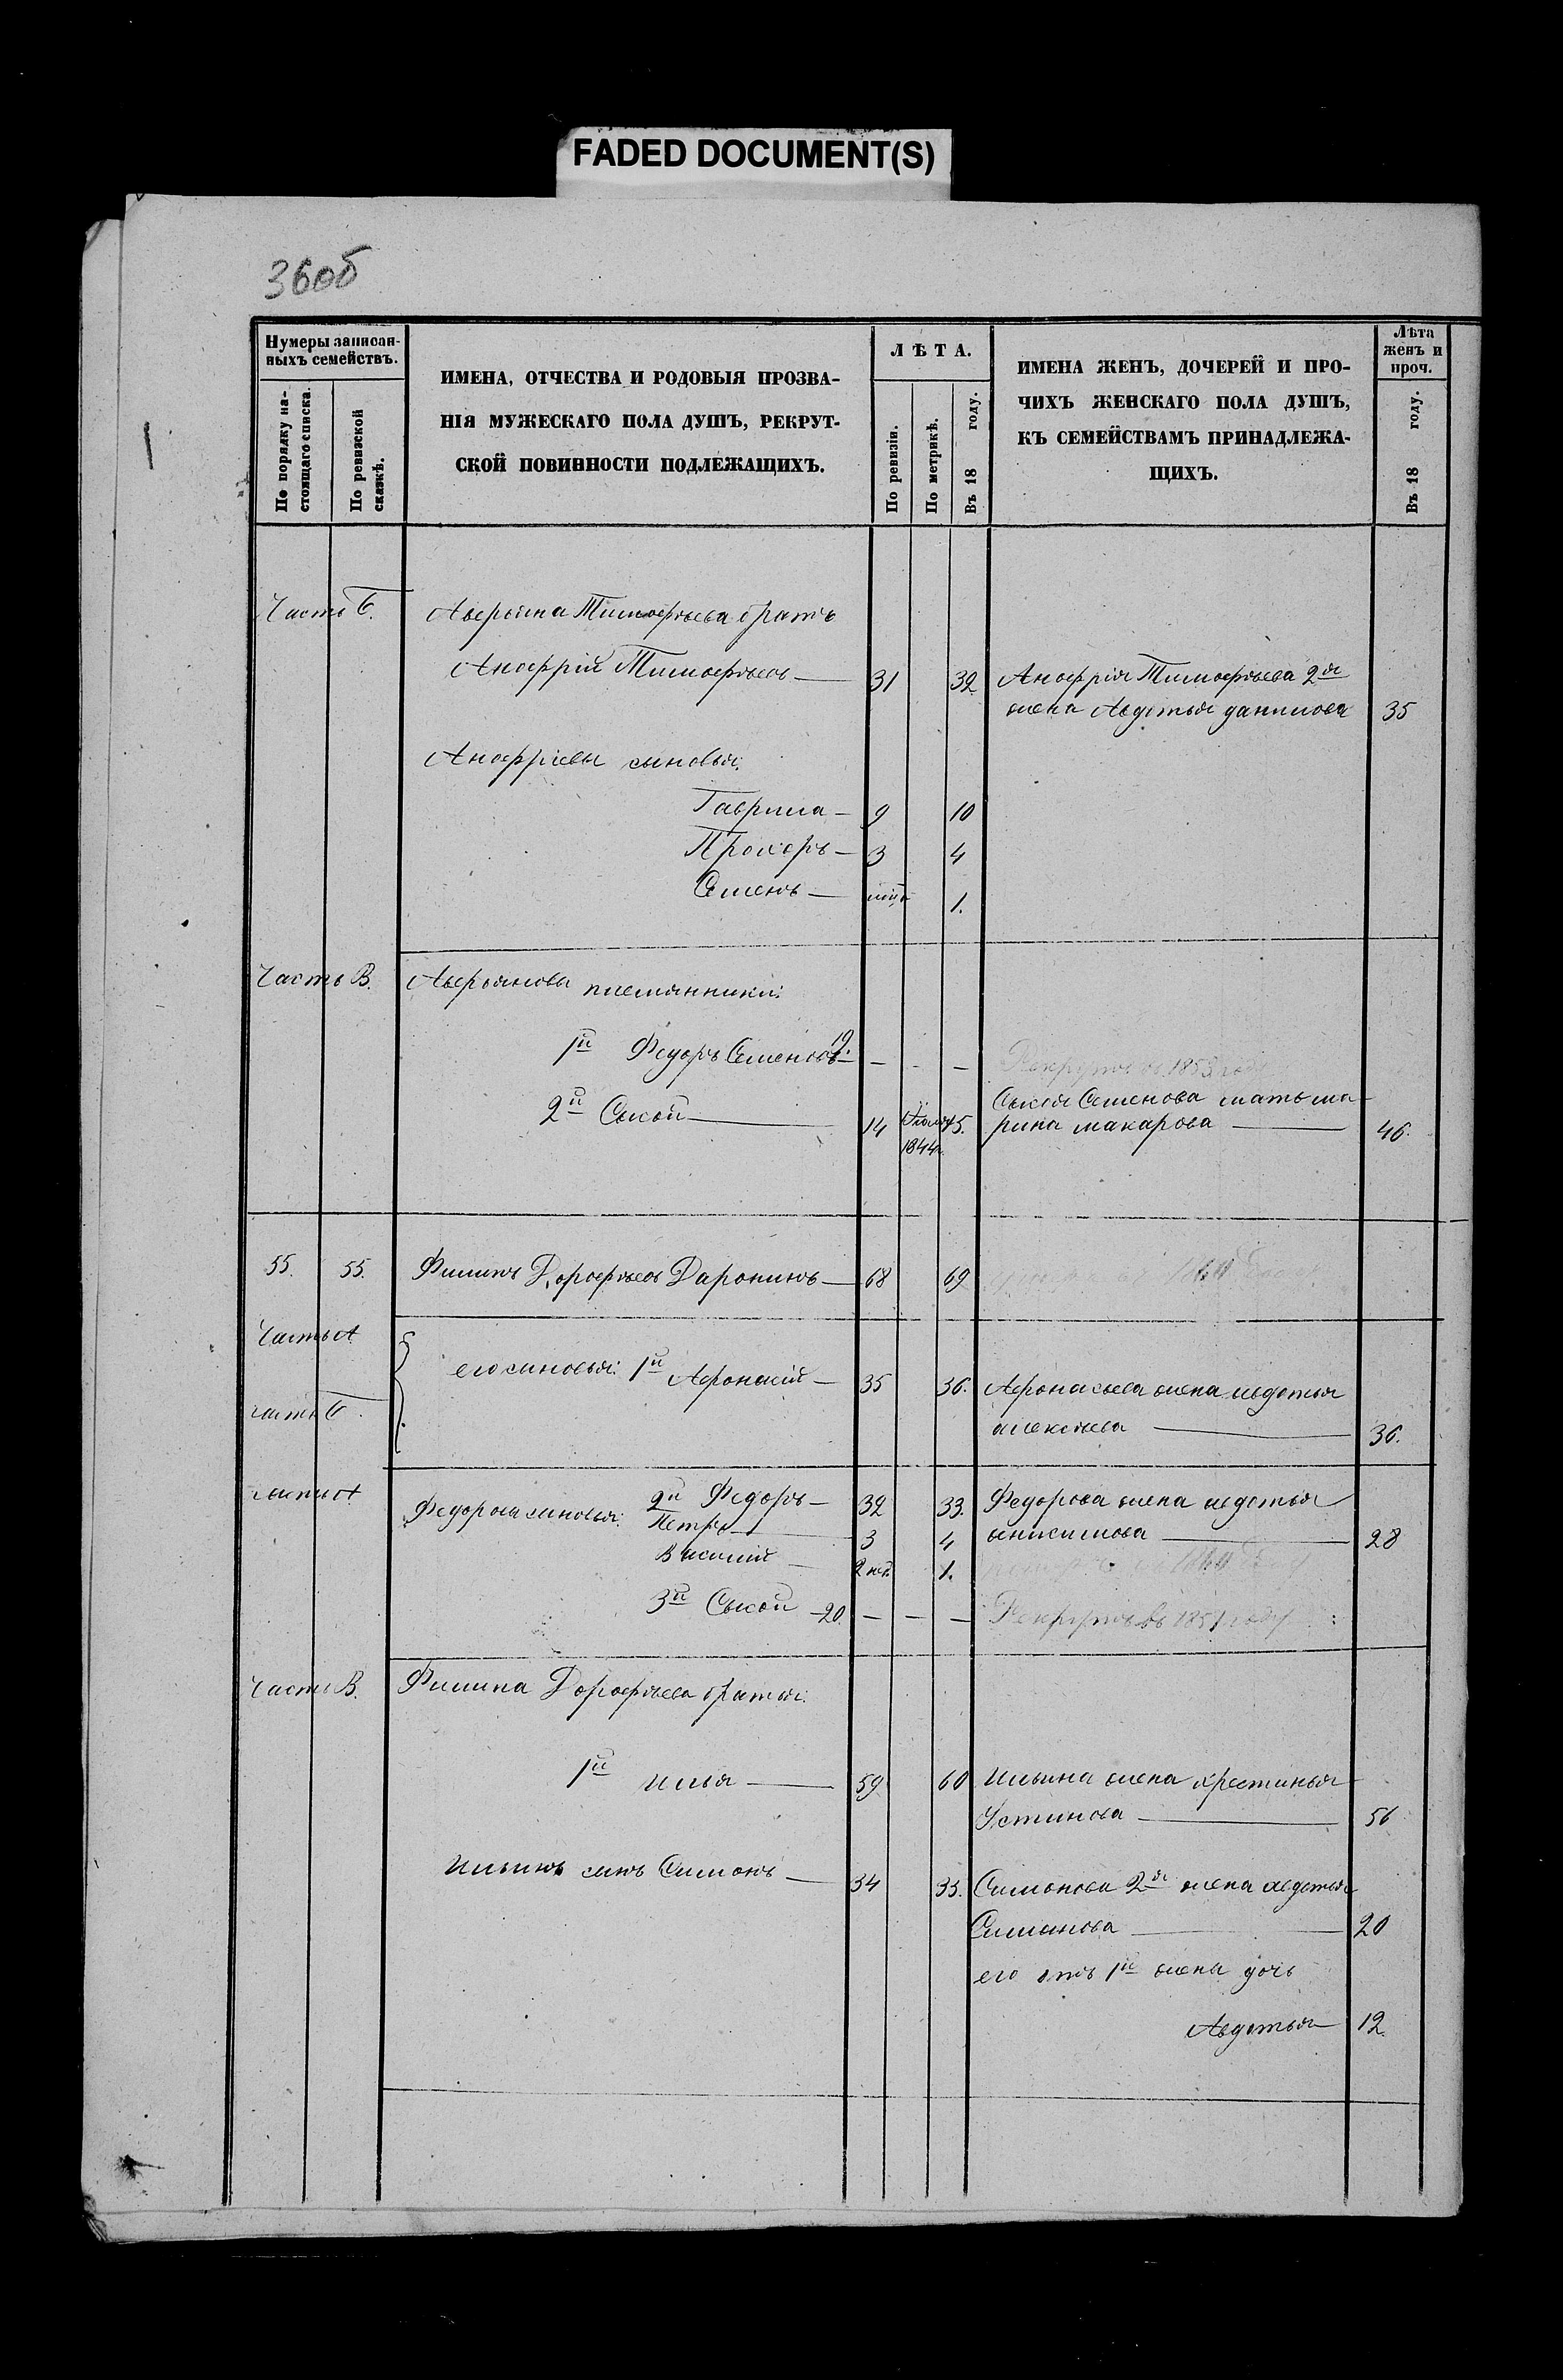 FADED DOCUMENT(S)
360б
Нумеры записан-
ныхъ семействъ.
По порядку на-
стоящаго списка.
По ревизской
сказкѣ.
ИМЕНА, ОТЧЕСТВА И РОДОВЫЯ ПРОЗВА-
НІЯ МУЖЕСКАГО ПОЛА ДУШЪ, РЕКРУТ-
СКОЙ ПОВИННОСТИ ПОДЛЕЖАЩИХЪ.
ЛѢТА.
По ревизіи.
По метрикѣ.
Въ 18 году.
ИМЕНА ЖЕНЪ, ДОЧЕРЕЙ И ПРО-
ЧИХЪ ЖЕНСКАГО ПОЛА ДУШЪ,
КЪ СЕМЕЙСТВАМЪ ПРИНАДЛЕЖА-
ЩИХЪ.
Лѣта
женъ и
проч.
Въ 18 году.
Часть Б. Аверьяна Тимофѣева братъ
Анофрій Тимофѣевъ — 31 32 Анофрія Тимофѣева 2я
жена Авдотья данилова 35
Анофріевы сыновья:
Гаврила — 9 10
Прохоръ — 3 4
Семенъ — 1.
Часть В. Аверьяновы племянники:
1й Федоръ Семеновъ 19. — — — Рекрутъ въ 1853 году
2й Сысой — 14 1844 15. Сысоя Семенова мать ма-
рина макарова — 46.
55. 55. Филипъ Дорофѣевъ Даронинъ — 68 69
Часть А
его сыновья: 1й Афонасій — 35 36. Афонасьева жена авдотья
часть Б.
алексѣева — 36.
часть А 2й Федоръ — 32 33. Федорова жена авдотья
Федоровы сыновья: Петръ — 3 4 анисимова — 28
Василій — 2 нед. 1.
3й Сысой — 20. — — — Рекрутъ въ 1851 году
часть В. Филипа Дорофѣева братья:
1й илья — 59 60 ильина жена крестинья
Устинова — 56
ильинъ сынъ Симонъ — 34 35. Симонова 2я жена авдотья
— 20
его отъ 1й жены дочь
Авдотья — 12.